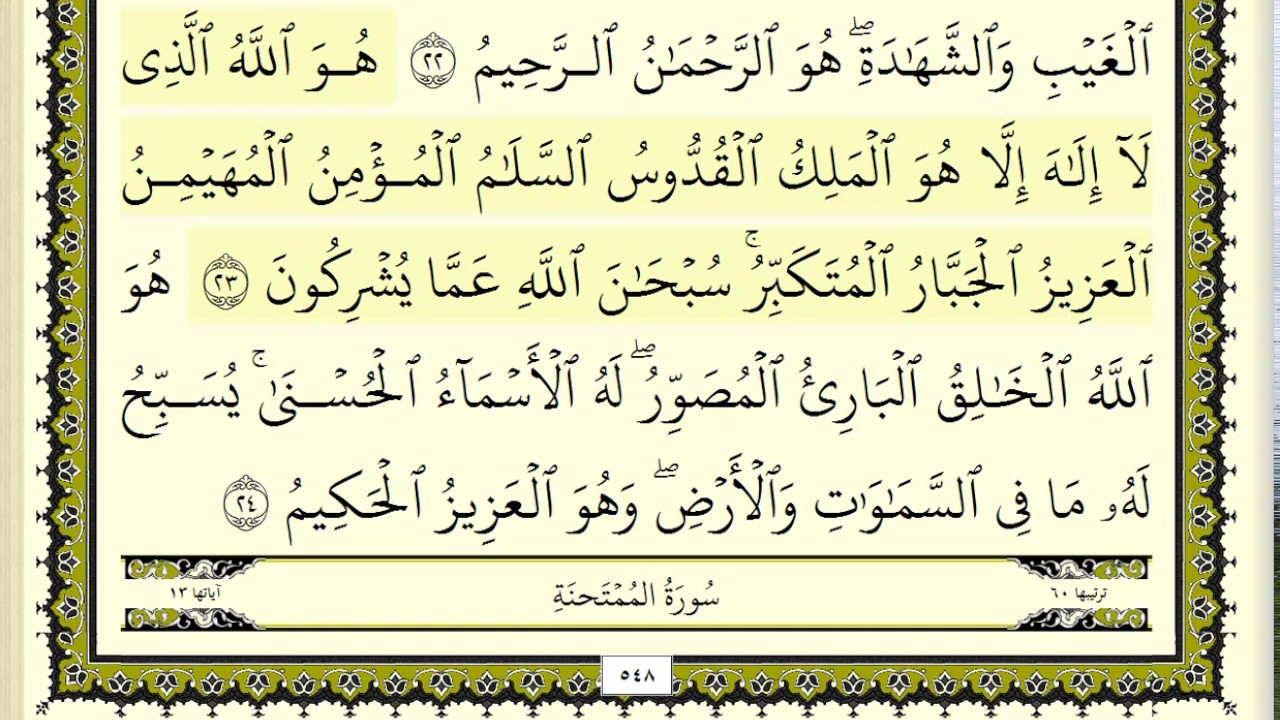 ٱلۡغَيۡبِ وَٱلشَّهَٰدَةِۖ هُوَ ٱلرَّحۡمَٰنُ ٱلرَّحِيمُ ٢٢ هُوَ ٱللَّهُ ٱلَّذِى
لَآ إِلَٰهَ إِلَّا هُوَ ٱلۡمَلِكُ ٱلۡقُدُّوسُ ٱلسَّلَٰمُ ٱلۡمُؤۡمِنُ ٱلۡمُهَيۡمِنُ
ٱلۡعَزِيزُ ٱلۡجَبَّارُ ٱلۡمُتَكَبِّرُۚ سُبۡحَٰنَ ٱللَّهِ عَمَّا يُشۡرِكُونَ ٢٣ هُوَ
ٱللَّهُ ٱلۡخَٰلِقُ ٱلۡبَارِئُ ٱلۡمُصَوِّرُۖ لَهُ ٱلۡأَسۡمَآءُ ٱلۡحُسۡنَىٰۚ يُسَبِّحُ
لَهُۥ مَا فِى ٱلسَّمَٰوَٰتِ وَٱلۡأَرۡضِۖ وَهُوَ ٱلۡعَزِيزُ ٱلۡحَكِيمُ ٢٤
ترتيبها ٦٠ سُورَةُ المُمۡتَحنَةِ آياتها ١٣
٥٤٨